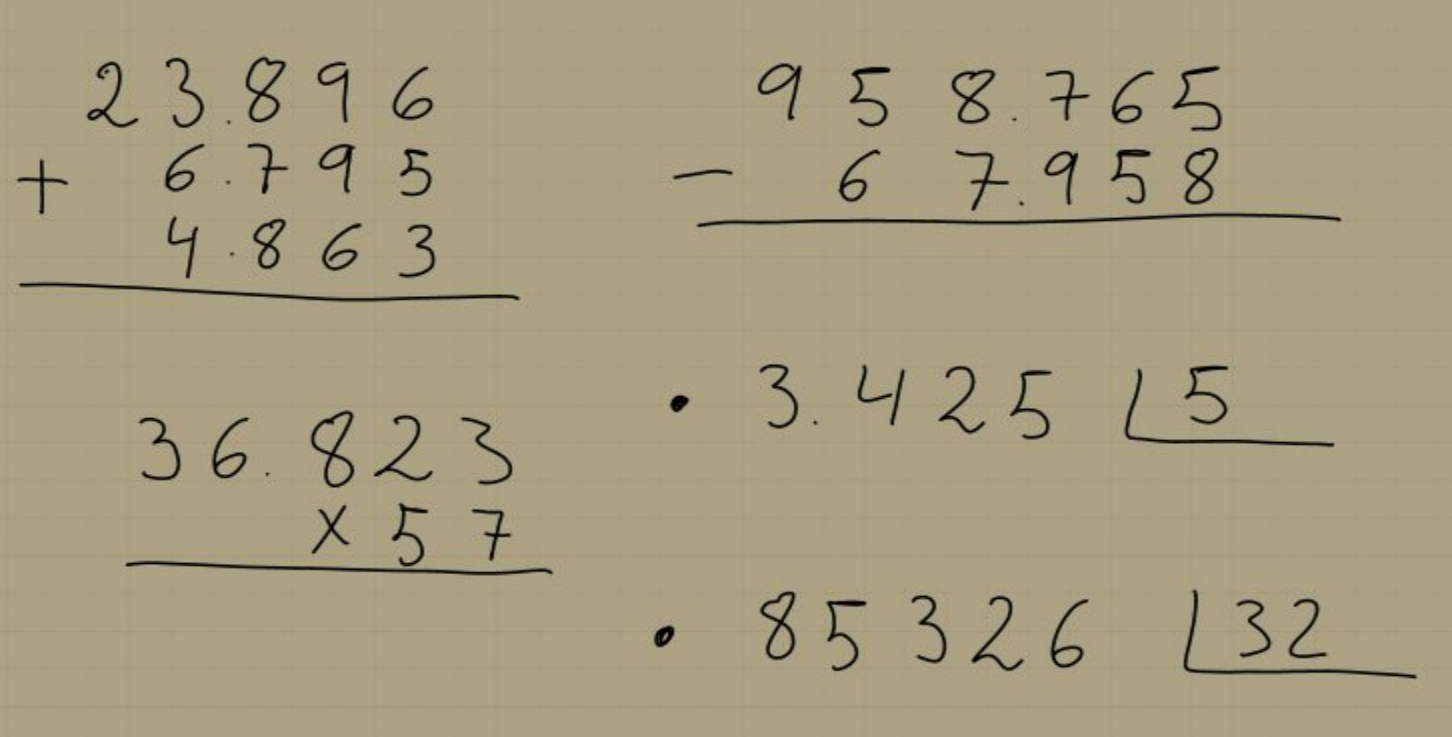 23.896
+ 6.795
4.863
958.765
- 67.958
36.823
x 57
• 3.425 5
• 85326 32